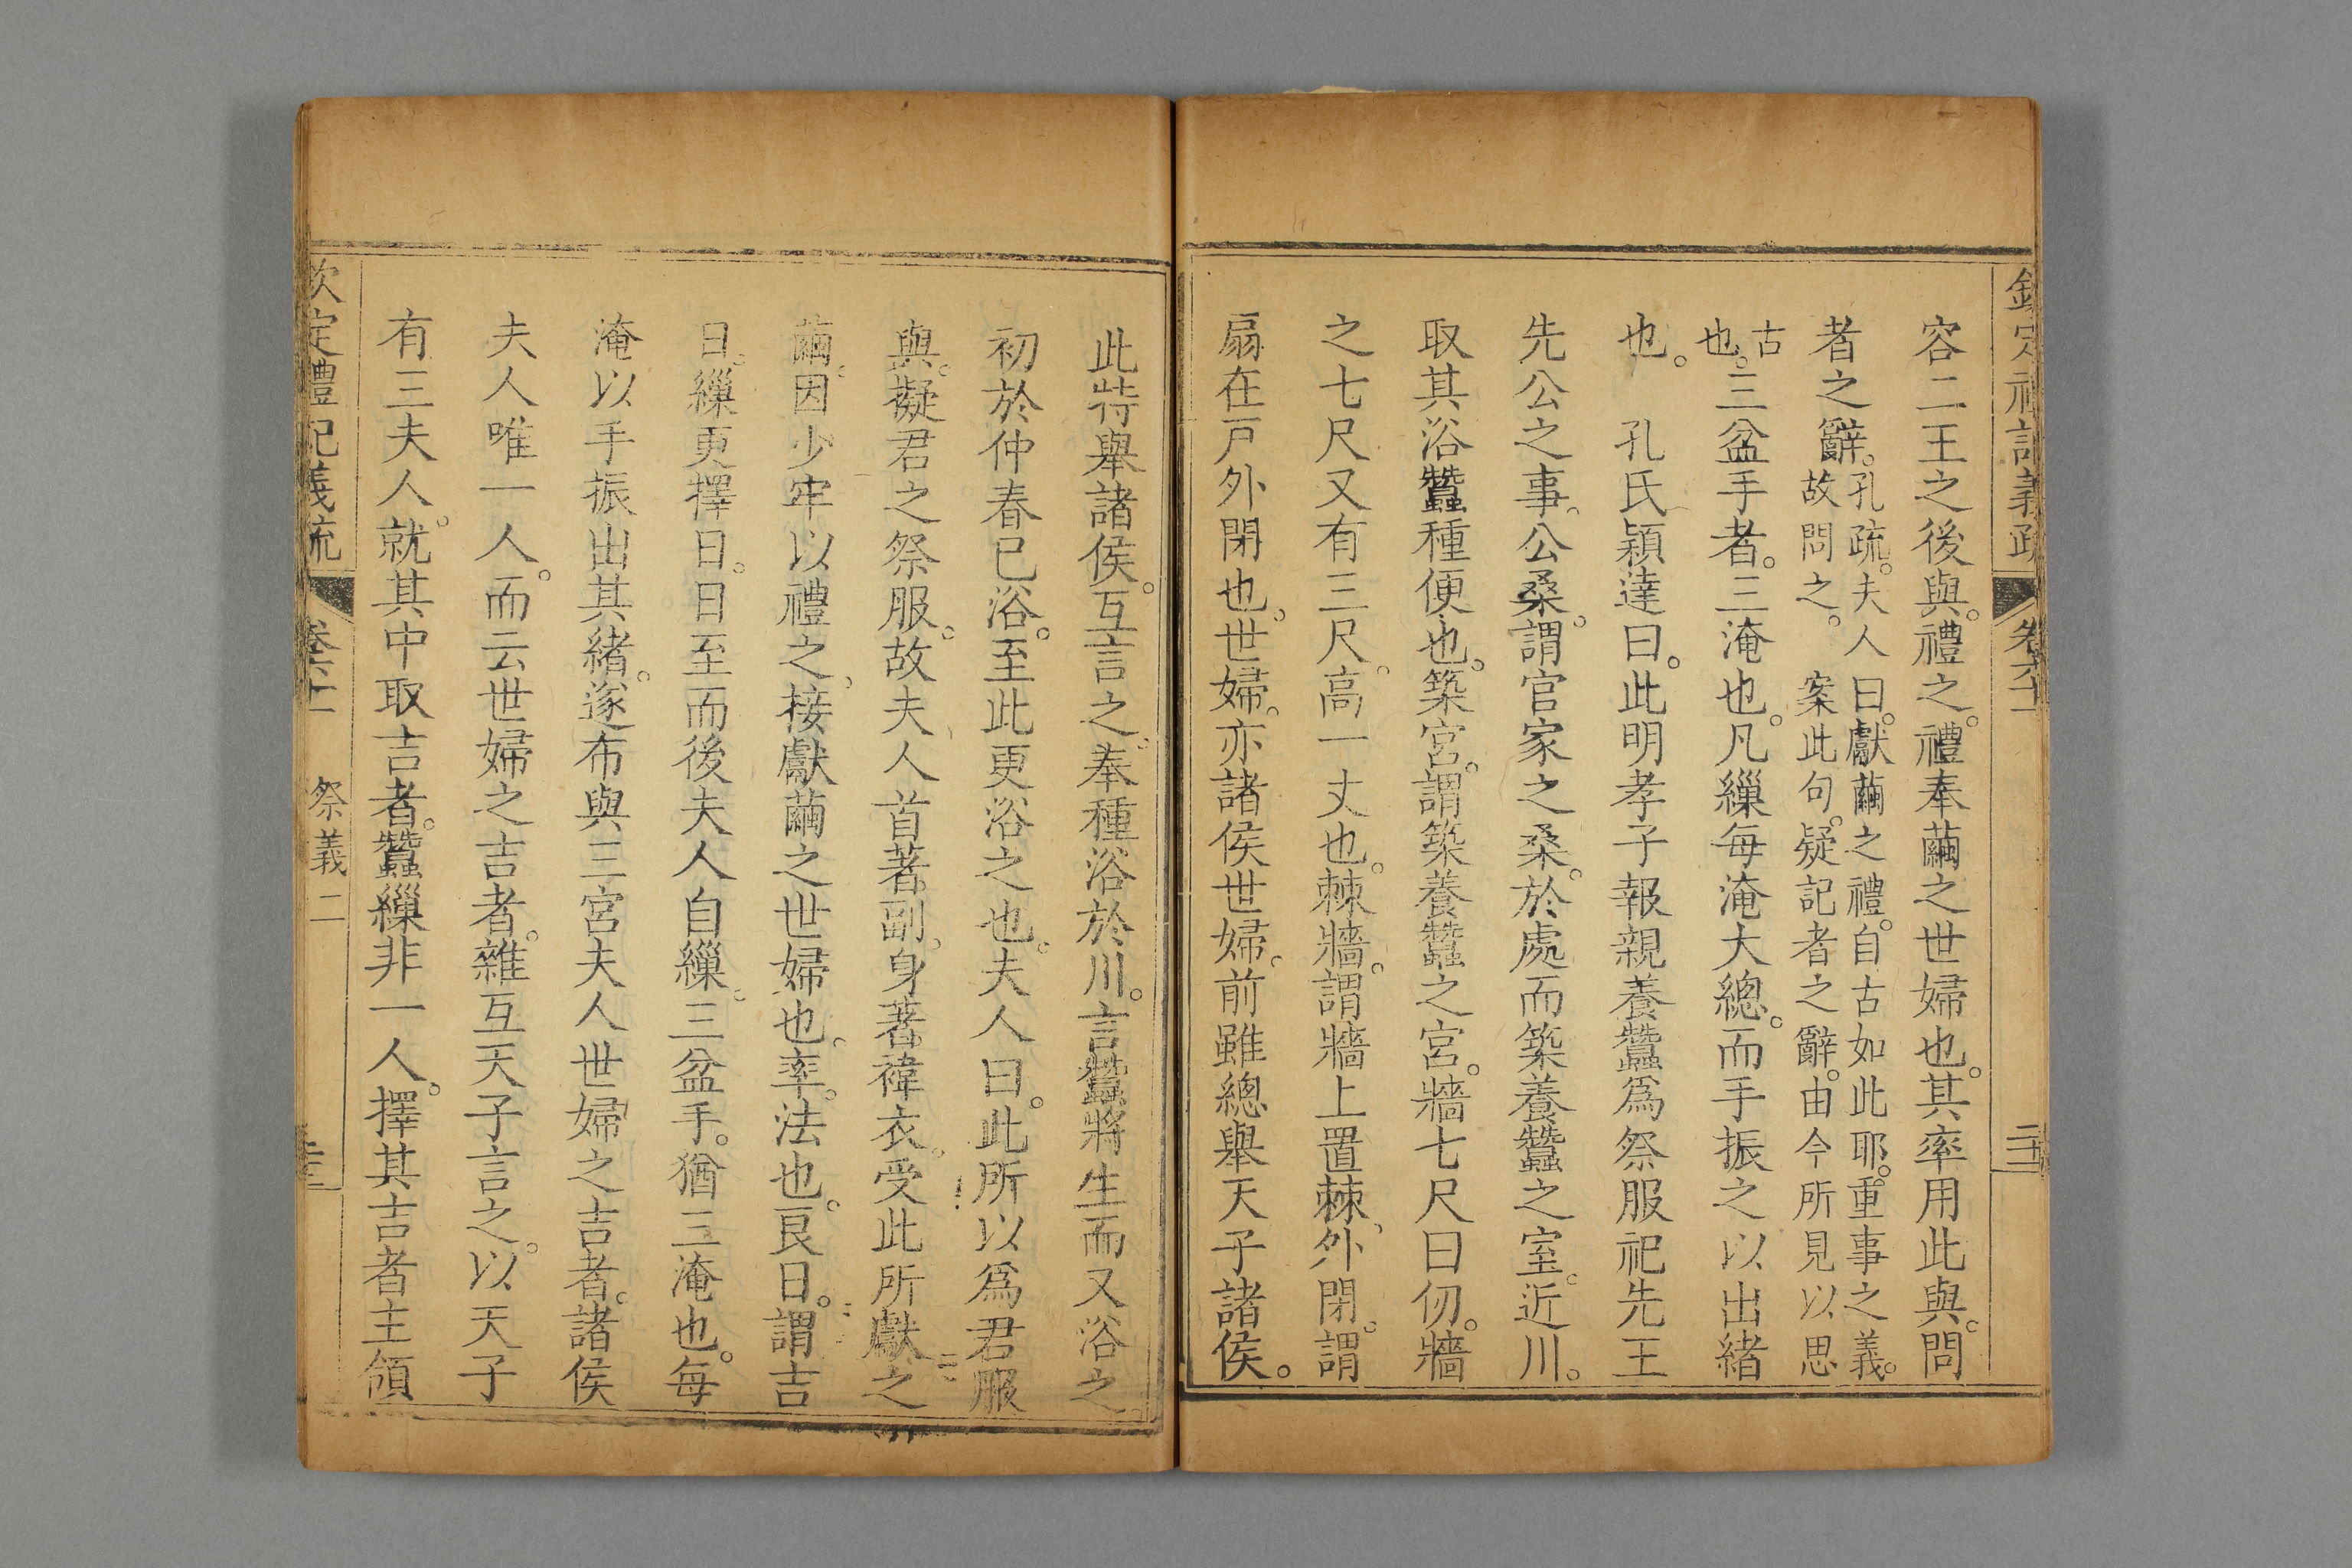 欽定禮記義疏 卷六十一
容二王之後與。禮之。禮奉繭之世婦也。其率用此與。問
者之辭。孔疏。夫人曰。獻繭之禮。自古如此耶。重事之義。
故問之。 案此句。疑記者之辭。由今所見以思
古
也。三盆手者。三淹也。凡繅每淹大總。而手振之以出緒
也。 孔氏穎達曰。此明孝子報親養蠶爲祭服祀先王
先公之事。公桑。謂官家之桑。於處而築養蠶之室。近川。
取其浴蠶種便也。築宮。謂築養蠶之宮。牆七尺曰仞。牆
之七尺又有三尺。高一丈也。棘牆。謂牆上置棘、外閉。謂
扇在戸外閉也。世婦。亦諸侯世婦。前雖總舉天子諸侯。
此特舉諸侯。互言之。奉種浴於川。言蠶將生而又浴之。
初於仲春已浴。至此更浴之也。夫人曰。此所以爲君服
與。擬君之祭服。故夫人首著。副。身著。褘衣。受此所獻之
繭。因少牢以禮之、接獻繭之世婦也、率。法也。良日。謂吉
日。繅更擇日。日至而後夫人自繅。三盆手。猶三淹也。每
淹以手振出其緒。遂布與三宮夫人世婦之吉者。諸侯
夫人唯一人。而云世婦之吉者。雜互天子言之。以天子
有三夫人。就其中取吉者。蠶繅非一人。擇其吉者主領
欽定禮記義疏 卷六十一 祭義二